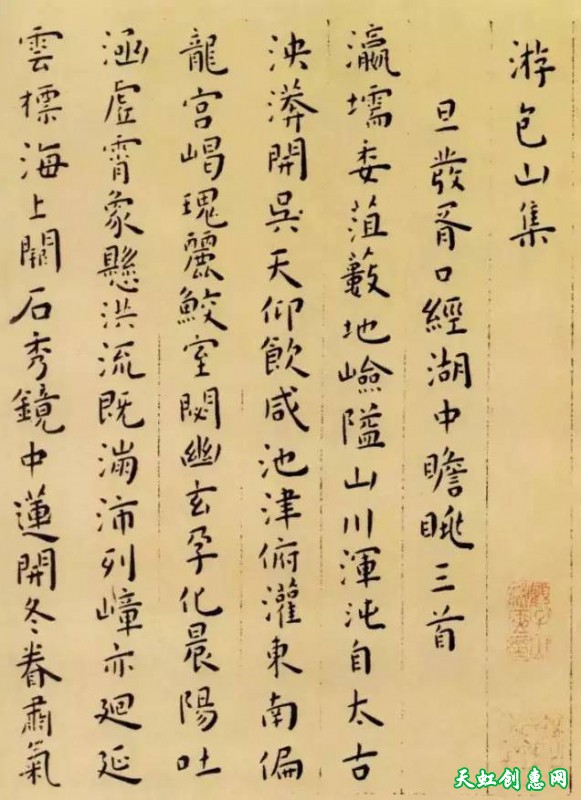 游包山集
旦發胥口經湖中瞻眺三首
瀛壖委菹藪地嶮隘山川渾沌自太古
泱漭開吳天仰飲咸池津俯灌東南偏
龍宮嵑瑰麗鮫室閟幽玄孕化晨陽吐
涵虛霄象懸洪流既滿沛列嶂亦廻延
雲標海上闕石秀鏡中蓮開冬眷肅氣
天虹创惠网